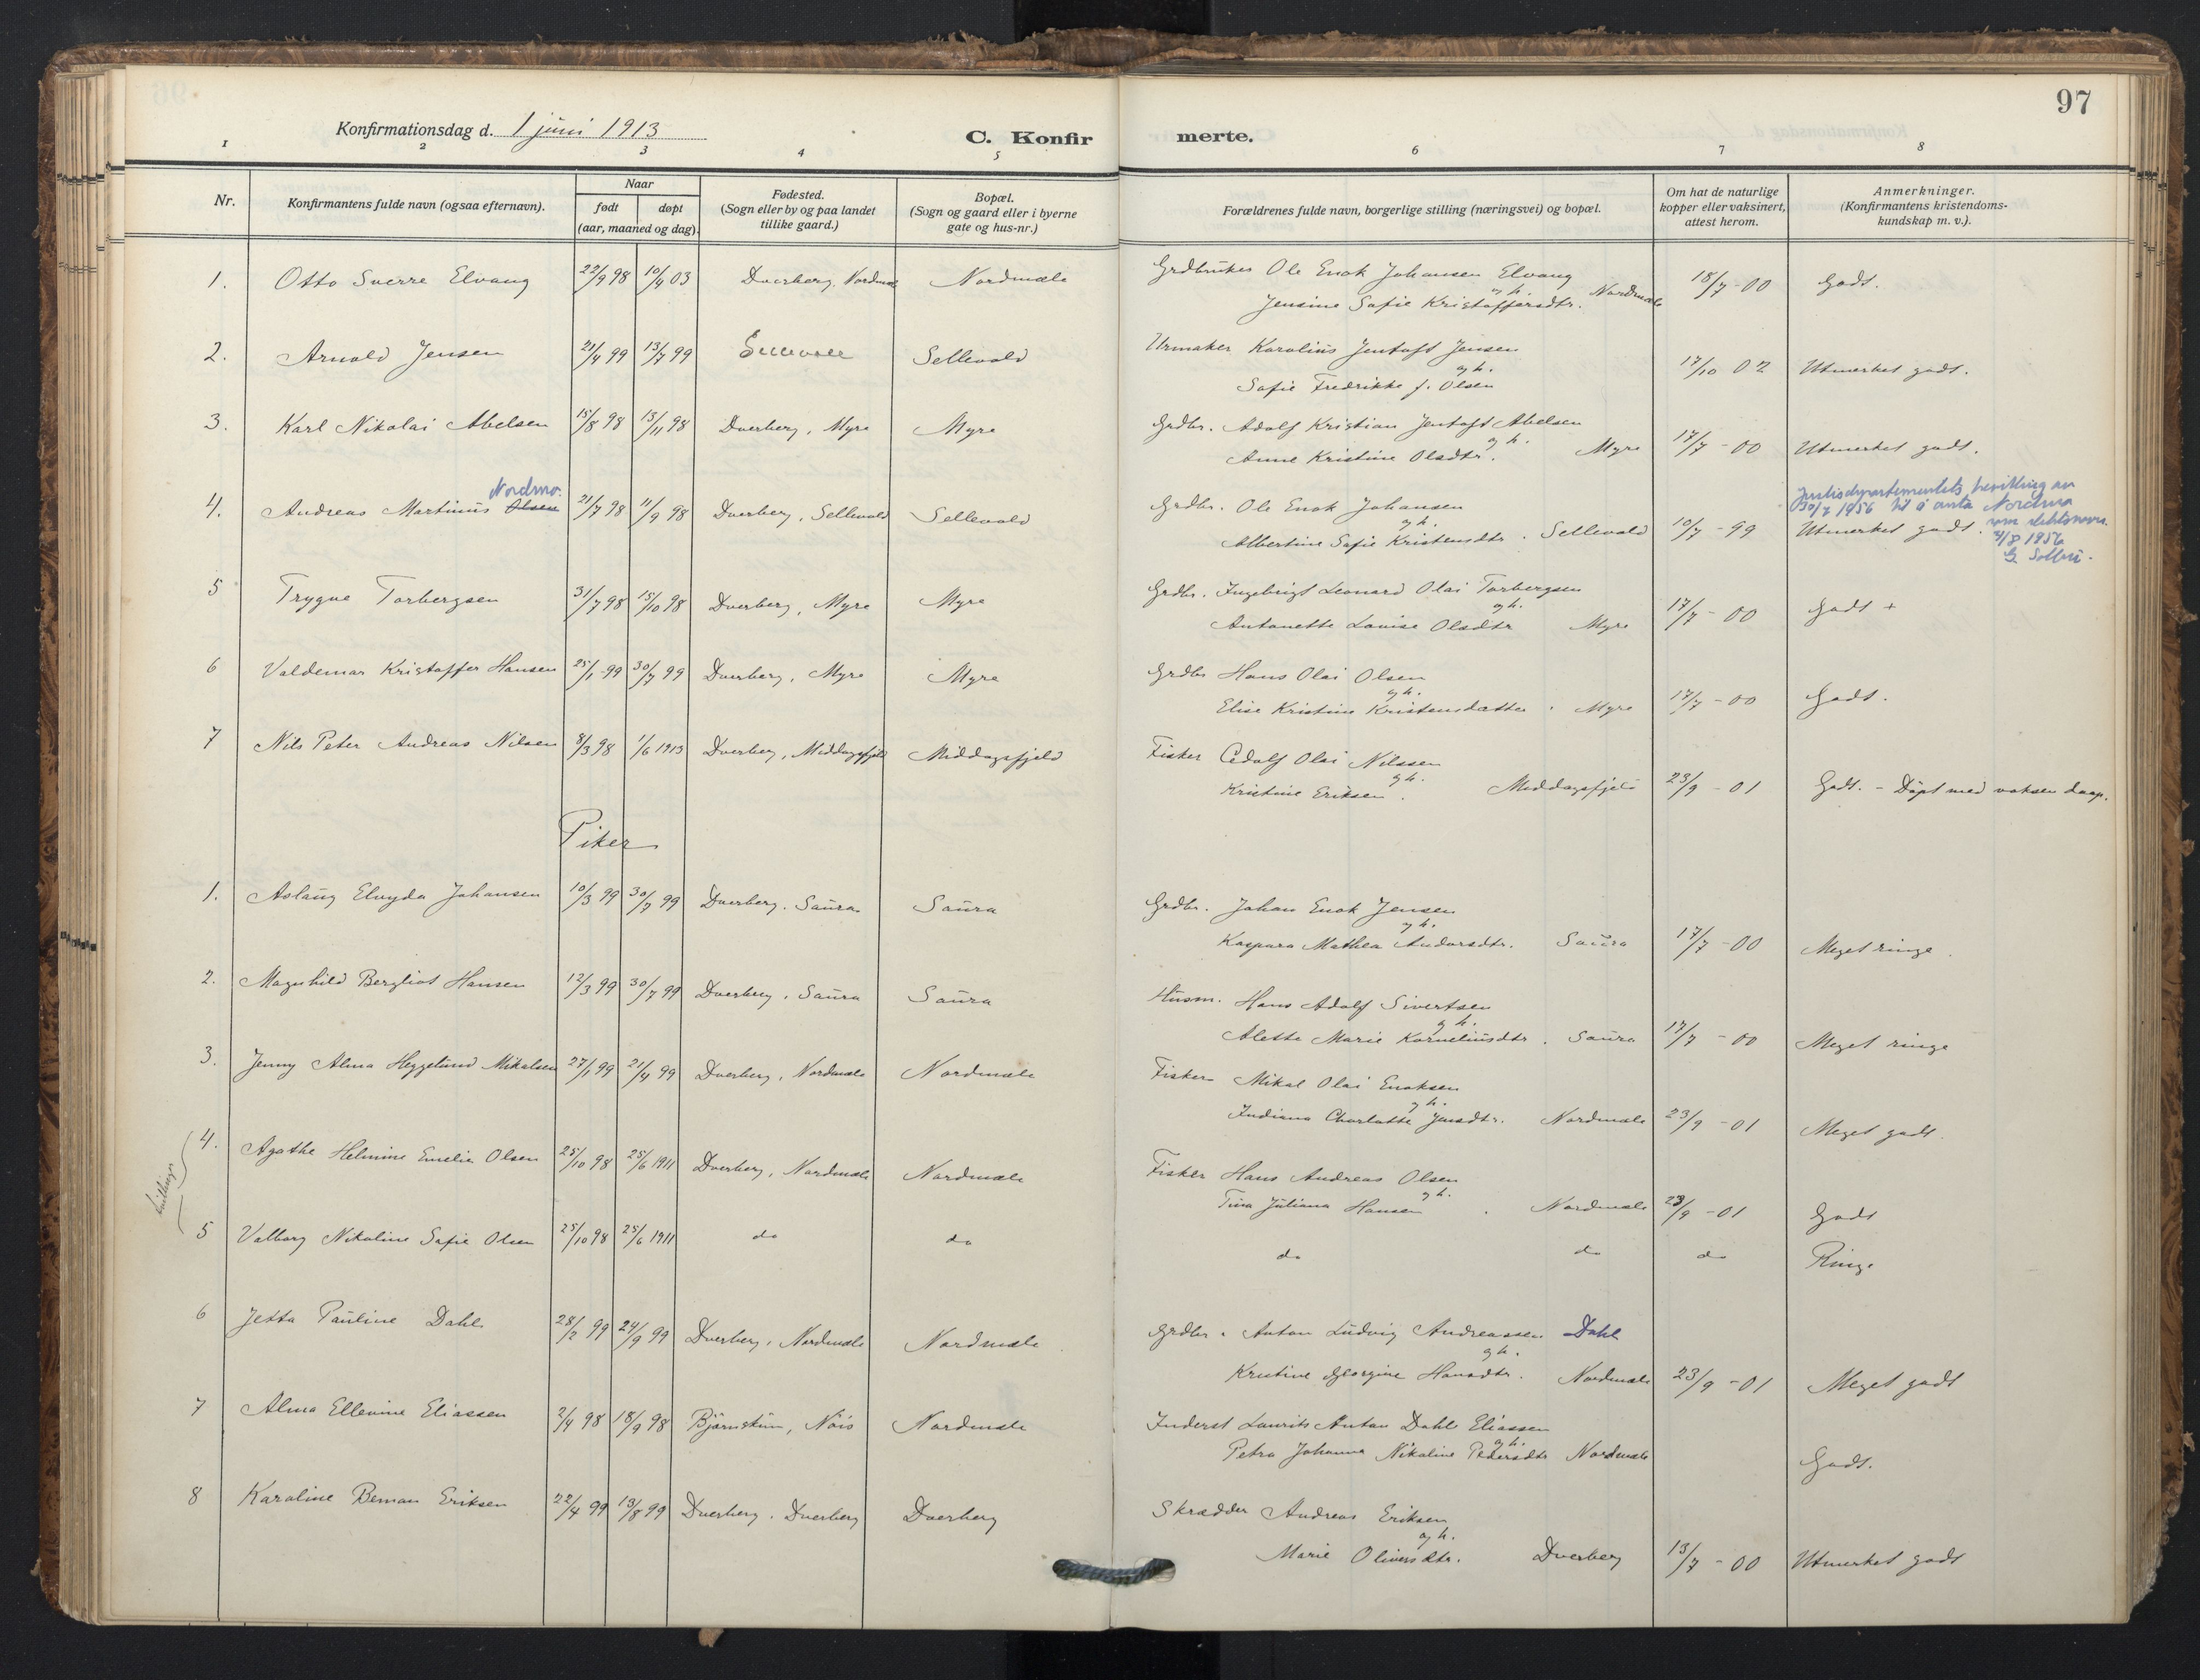 97
Konfirmationsdag d. 1 juni 1913
C. Konfirmerte.
1 2 3 4 5 6 7 8
Nr.
Konfirmantens fulde navn (ogsaa efternavn).
Naar
født døpt
(aar, maaned og dag).
Fødested.
(Sogn eller by og paa landet
tillike gaard.)
Bopæl.
(Sogn og gaard eller i byerne
gate og hus-nr.)
Forældrenes fulde navn, borgerlige stilling (næringsvei) og bopæl.
Om hat de naturlige
kopper eller vaksinert,
attest herom.
Anmerkninger.
(Konfirmantens kristendoms-
kundskap m. v.).
1. Otto Sverre Elvang 22/9 98 10/9 03 Dverberg, Nordmæle Nordmæle Grdbruker Ole Enok Johansen Elvang
og h. Jensine Sofie Kristoffersdtr. Nordmæle 18/7-00 Godt.
2. Arnold Jensen 21/4 99 13/7 99 Sellevoll Sellevold Urmaker Karolius Jentoft Jensen
og h. Sofie Fredrikke f. Olsen 17/10 02 Utmerket godt.
3. Karl Nikolai Abelsen 15/8 98 13/11 98 Dverberg, Myre Myre Grdbr. Adolf Kristian Jentoft Abelsen
og h. Anne Kristine Olsdtr. Myre 17/7-00 Utmerket godt.
4. Andreas Martinus Olsen Nordmo. 21/7 98 11/9 98 Dverberg, Sellevold Sellevold Grdbr. Ole Enok Johansen
og h. Albertine Sofie Kristensdtr. Sellevold 10/7-99 Utmerket godt.
Justisdepartementets bevilling av
30/7 1956 til å anta Nordmo
som slektsnavn.
3/8 1956
5 Trygve Torbergsen 31/7 98 15/10 98 Dverberg, Myre Myre Grdbr. Ingebrigt Leonard Olai Torbergsen
og h. Antonette Lovise Olsdtr Myre 17/7-00 Godt +
6 Valdemar Kristoffer Hansen 25/1-99 30/7 99 Dverberg, Myre Myre Grdbr Hans Olai Olsen
og h. Elise Kristine Kristensdatter. Myre 17/7-00 Godt.
7 Nils Peter Andreas Nilsen 8/3 98 1/6 1913 Dverberg, Middagsfjeld Middagsfjeld Fisker Edolf Olai Nilssen
og h. Kristine Eriksen. Middagsfjeld 23/9-01 Godt. - Döpt med voksen daap.
Piker
1. Aslaug Elvyda Johansen 10/3 99 30/7 99 Dverberg. Saura Saura Grdbr. Johan Enok Jensen
og h. Kaspara Mathea Andorsdtr. Saura 17/7-00 Meget ringe.
2. Magnhild Bergliot Hansen 12/3 99 30/7 99 Dverberg, Saura Saura Husm. Hans Adolf Sivertsen
og h. Alette Marie Korneliusdtr. Saura 17/7-00 Meget ringe
3. Jenny Alma Heggelund Mikalsen 27/1 99 21/4 99 Dverberg, Nordmæle Nordmæle Fisker Mikal Olai Enoksen
og h. Indiana Charlotte Jensdtr. Nordmæle 23/9-01 Meget godt.
tvillinger
4. Agathe Helmine Emelie Olsen 25/10 98 25/6 1911 Dverberg, Nordmæle Nordmæle Fisker Hans Andreas Olsen
og h. Tina Juliana Hansen. Nordmæle 23/9-01 Godt
5 Valborg Nikoline Sofie Olsen 25/10 98 25/6 1911 do do do do do Ringe
6 Jetta Pauline Dahl 28/2 99 24/9 99 Dverberg, Nordmæle Nordmæle Grdbr. Anton Ludvig Andreassen Dahl
og h. Kristine Georgine Hansdtr. Nordmæle 23/9-01 Meget godt
7 Alma Ellevine Eliassen 2/4 98 18/9 98 Björnskin, Nöis Nordmæle Inderst Laurits Anton Dahl Eliassen
og h. Petra Johanna Nikoline Pedersdtr Nordmæle Godt.
8 Karoline Beman Eriksen 22/4 99 13/8 99 Dverberg. Dverberg Dverberg Skrædder Andreas Eriksen
og h. Marie Oliversdtr. Dverberg 13/7-00 Utmerket godt